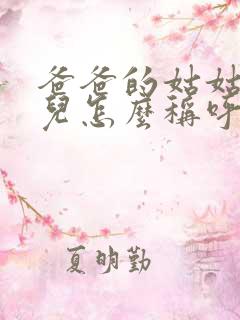 爸爸的姑姑
兒怎麼稱呼
夏明勤